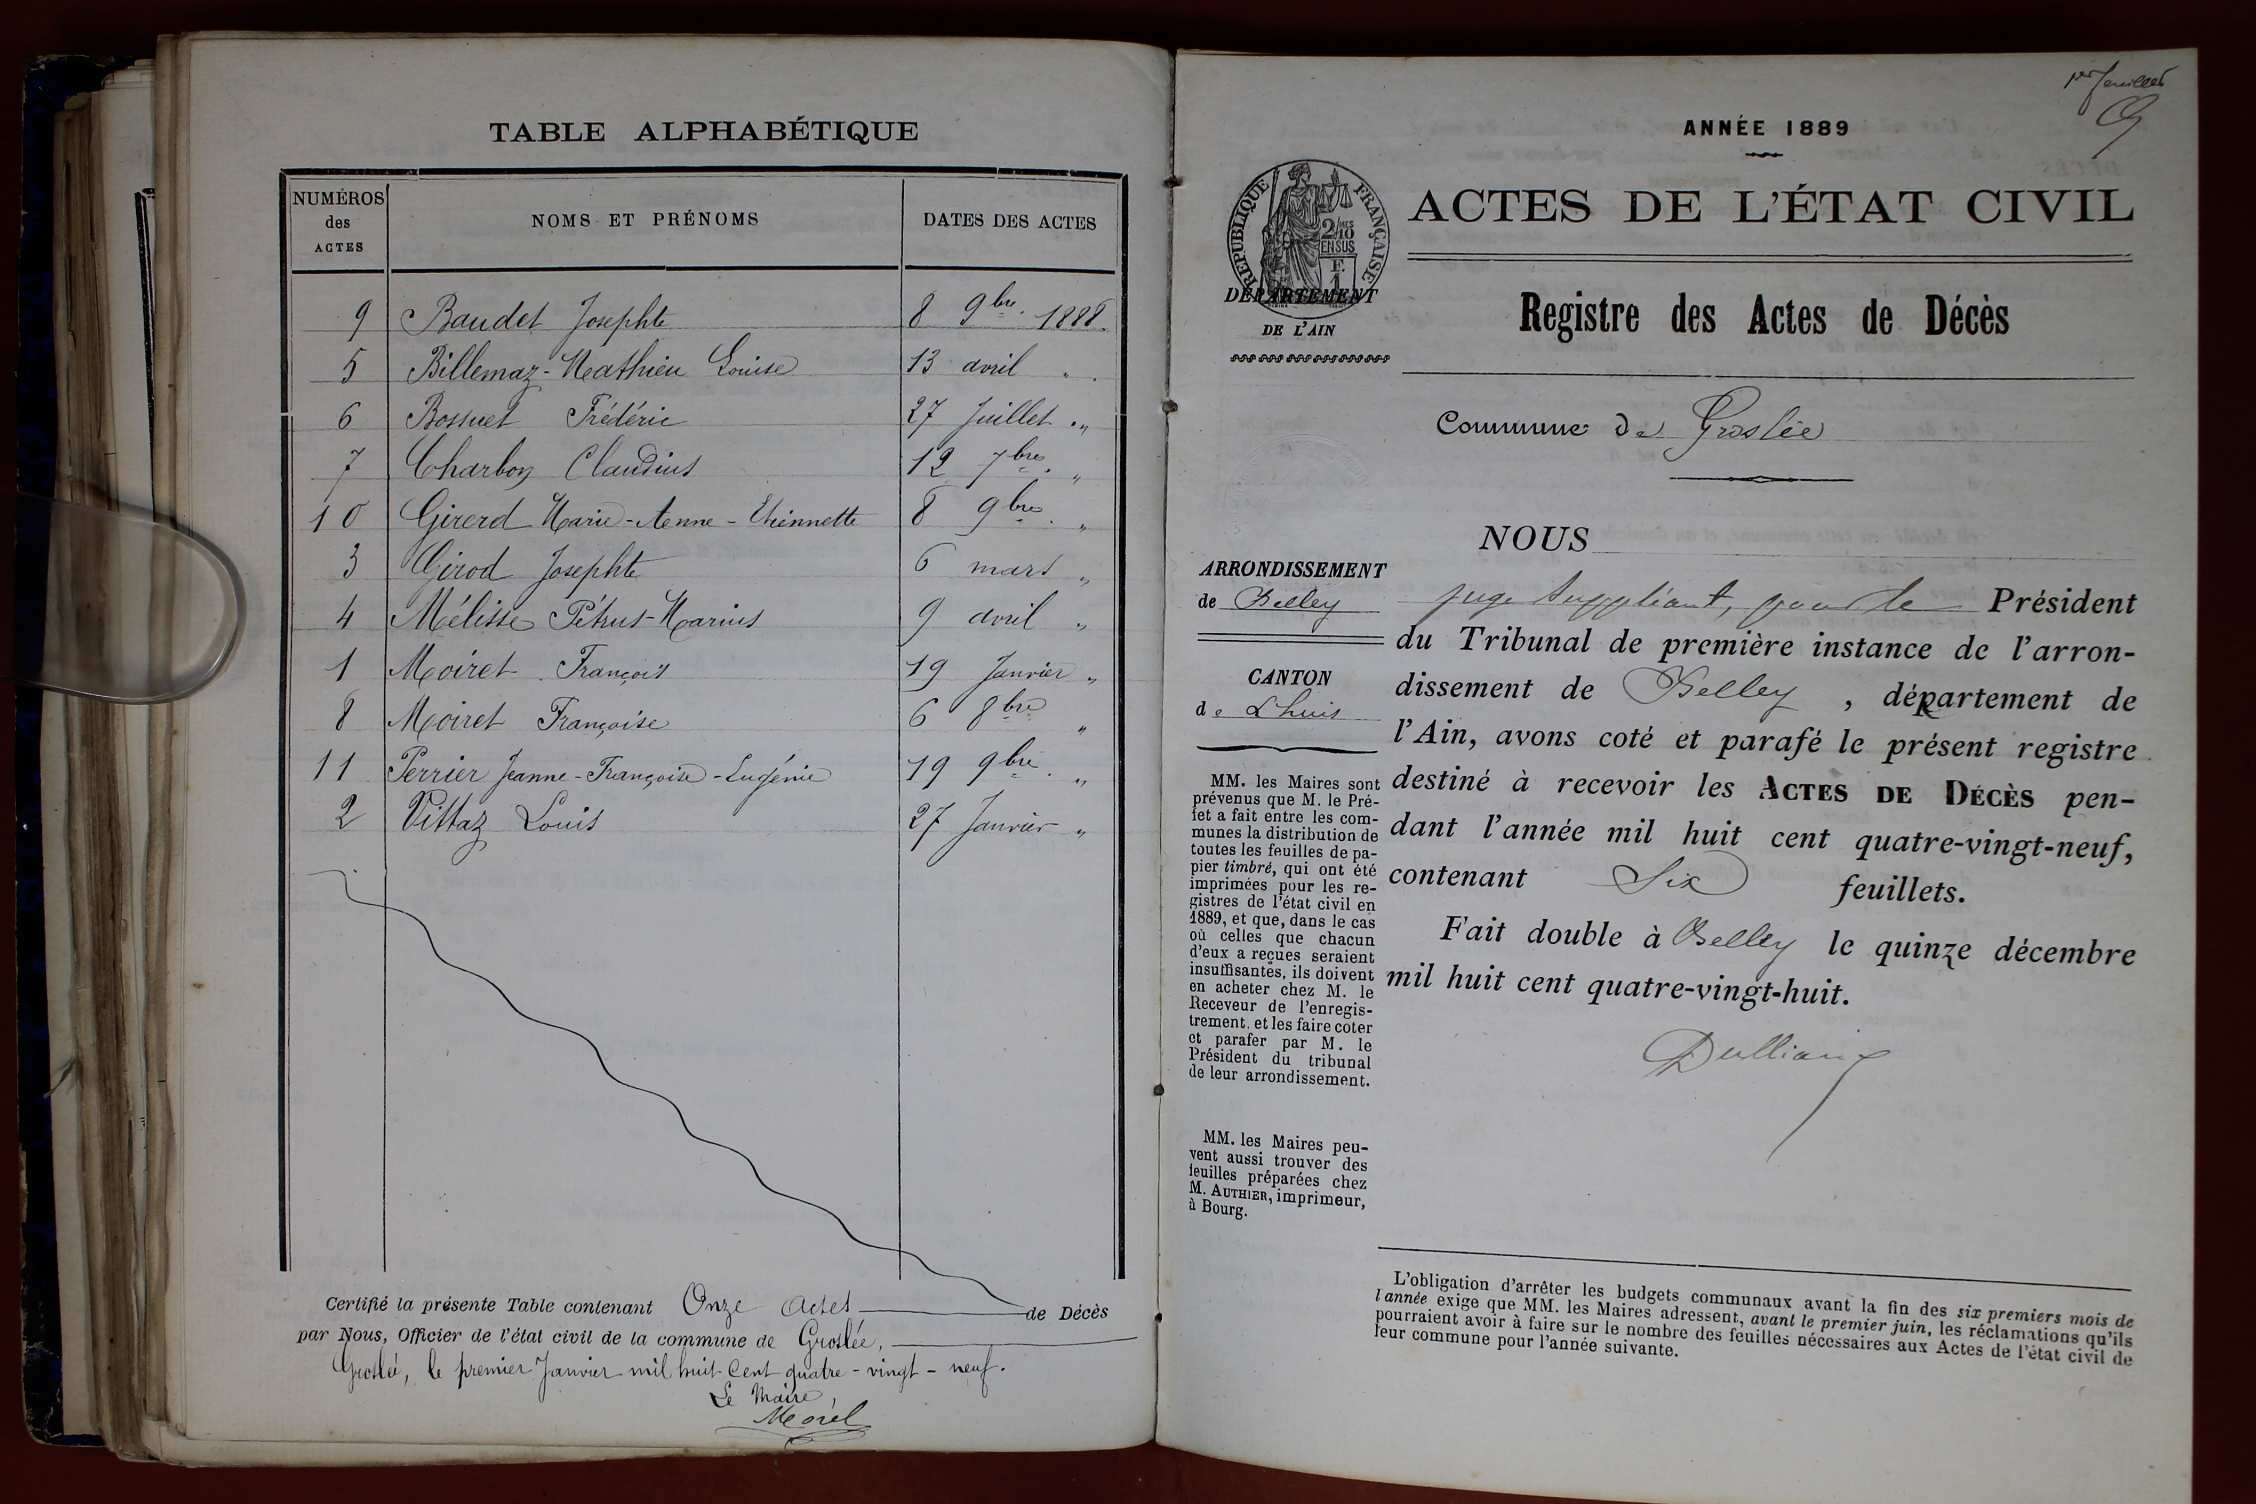 TABLE ALPHABÉTIQUE
NUMÉROS des ACTES
NOMS ET PRÉNOMS
DATES DES ACTES
9 Baudet Josephte 8 9bre 1888.
5 Billemaz-Mathieu Louise 13 avril "
6 Bossuet Frédéric 27 Juillet "
7 Charbon Claudius 12 7bre "
10 Girerd Marie-Anne-Etiennette 8 9bre "
3 Girod Josephte 6 mars "
4 Mélisse Pétrus-Marius 9 avril "
1 Moiret François 19 Janvier "
8 Moiret Françoise 6 8bre "
11 Perrier Jeanne-Françoise-Eugénie 19 9bre "
2 Vittaz Louis 27 Janvier "
Certifié la présente Table contenant Onze Actes de Décès
par Nous, Officier de l'état civil de la commune de Groslée,
Groslée, le premier Janvier mil huit cent quatre-vingt-neuf.
Le Maire,
Morel
1er feuillet
ANNÉE 1889
RÉPUBLIQUE FRANÇAISE
2/10 EN SUS
DÉPARTEMENT
DE L'AIN
ACTES DE L'ÉTAT CIVIL
Registre des Actes de Décès
Commune de Groslée
ARRONDISSEMENT
de Belley
CANTON
de Lhuis
MM. les Maires sont
prévenus que M. le Pré-
fet a fait entre les com-
munes la distribution de
toutes les feuilles de pa-
pier timbré, qui ont été
imprimées pour les re-
gistres de l'état civil en
1889, et que, dans le cas
où celles que chacun
d'eux a reçues seraient
insuffisantes, ils doivent
en acheter chez M. le
Receveur de l'enregis-
trement, et les faire coter
et parafer par M. le
Président du tribunal
de leur arrondissement.
MM. les Maires peu-
vent aussi trouver des
feuilles préparées chez
M. AUTHIER, imprimeur,
à Bourg.
NOUS
juge suppléant, pour le Président
du Tribunal de première instance de l'arron-
dissement de Belley, département de
l'Ain, avons coté et parafé le présent registre
destiné à recevoir les ACTES DE DÉCÈS pen-
dant l'année mil huit cent quatre-vingt-neuf,
contenant Six feuillets.
Fait double à Belley le quinze décembre
mil huit cent quatre-vingt-huit.
L'obligation d'arrêter les budgets communaux avant la fin des six premiers mois de
l'année exige que MM. les Maires adressent, avant le premier juin, les réclamations qu'ils
pourraient avoir à faire sur le nombre des feuilles nécessaires aux Actes de l'état civil de
leur commune pour l'année suivante.